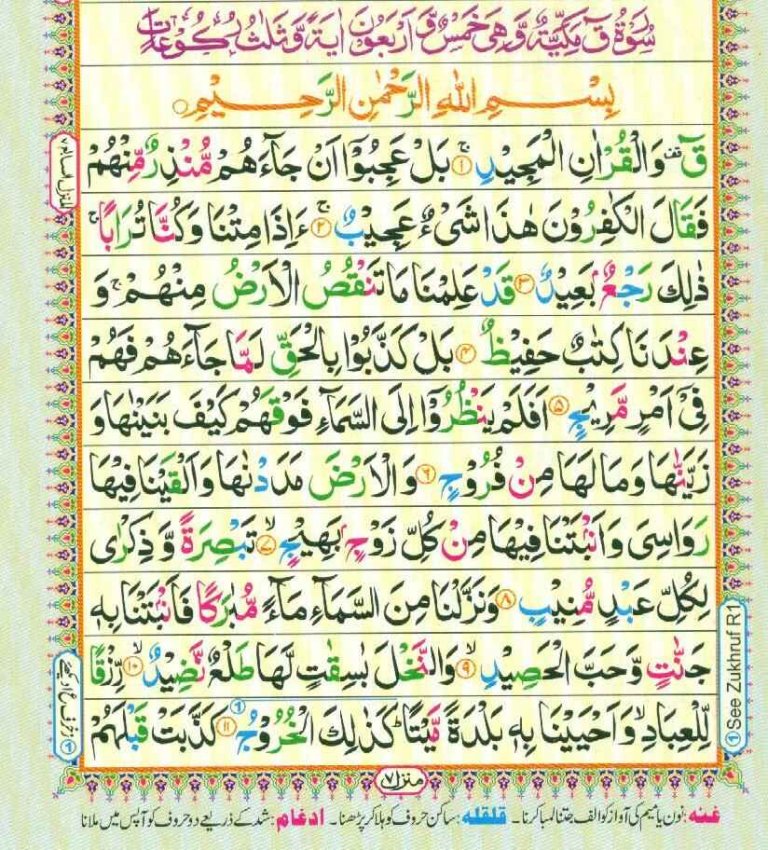 سُوْرَةُ قٓ مَكِّيَّةٌ وَّهِىَ خَمْسٌ وَّ اَرْبَعُوْنَ اٰيَةً وَّثَلٰثُ رُكُوْعَاتٍ
بِسْمِ اللّٰهِ الرَّحْمٰنِ الرَّحِيْمِ
قٓ ۚ وَالْقُرْاٰنِ الْمَجِيْدِ ۚ‏﴿۱﴾ بَلْ عَجِبُوْۤا اَنْ جَآءَهُمْ مُّنْذِرٌ مِّنْهُمْ
فَقَالَ الْكٰفِرُوْنَ هٰذَا شَىْءٌ عَجِيْبٌ ۚ‏﴿۲﴾ ءَاِذَا مِتْنَا وَكُنَّا تُرَابًا ۚ
ذٰلِكَ رَجْعٌۢ بَعِيْدٌ ﴿۳﴾ قَدْ عَلِمْنَا مَا تَنْقُصُ الْاَرْضُ مِنْهُمْ ۚ وَ
عِنْدَنَا كِتٰبٌ حَفِيْظٌ ﴿۴﴾ بَلْ كَذَّبُوْا بِالْحَقِّ لَمَّا جَآءَهُمْ فَهُمْ
فِىْۤ اَمْرٍ مَّرِيْجٍ ﴿۵﴾ اَفَلَمْ يَنْظُرُوْۤا اِلَى السَّمَآءِ فَوْقَهُمْ كَيْفَ بَنَيْنٰهَا وَ
زَيَّنّٰهَا وَمَا لَهَا مِنْ فُرُوْجٍ ﴿۶﴾ وَالْاَرْضَ مَدَدْنٰهَا وَاَلْقَيْنَا فِيْهَا
رَوَاسِىَ وَاَنْۢبَتْنَا فِيْهَا مِنْ كُلِّ زَوْجٍۢ بَهِيْجٍ ۙ﴿۷﴾ تَبْصِرَةً وَّ ذِكْرٰى
لِكُلِّ عَبْدٍ مُّنِيْبٍ ﴿۸﴾ وَنَزَّلْنَا مِنَ السَّمَآءِ مَآءً مُّبٰرَكًا فَاَنْۢبَتْنَا بِهٖ
جَنّٰتٍ وَّحَبَّ الْحَصِيْدِ ۙ﴿۹﴾ وَالنَّخْلَ بٰسِقٰتٍ لَّهَا طَلْعٌ نَّضِيْدٌ ۙ﴿۱۰﴾ رِّزْقًا
لِّلْعِبَادِ ۙ وَاَحْيَيْنَا بِهٖ بَلْدَةً مَّيْتًا ؕ كَذٰلِكَ الْخُرُوْجُ ﴿۱۱﴾ كَذَّبَتْ قَبْلَهُمْ
① See Zukhruf R1
منزل ۷
غنه: نون یا میم کی آواز کو الف جتنا لمبا کرنا۔ قلقله: ساکن حروف کو ہلا کر پڑھنا۔ ادغام: شد کے ذریعے دو حروف کو آپس میں ملانا